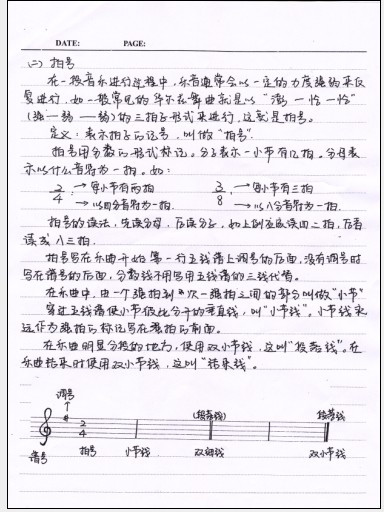 DATE: PAGE:
(二) 拍号
在一段音乐进行过程中,乐音通常会以一定的力度强弱来反
复进行,如一般常见的华尔兹舞曲就是以“澎一恰一恰”
(强一弱一弱)的三拍子形式来进行,这就是拍号。
定义:表示拍子的记号,叫做“拍号”.
拍号用分数的形式标记。分子表示一小节有几拍。分母表
示以什么音符为一拍。如:
2/4 → 每小节有两拍 3/8 → 每小节有三拍
→ 以四分音符为一拍. → 以八分音符为一拍.
拍号的读法,先读分母,后读分子,如上例应该读四二拍,后者
读成八三拍.
拍号写在乐曲开始第一行五线谱上调号的后面,没有调号时
写在谱号的后面,分数线不用写用五线谱的三线代替。
在乐曲中,由一个强拍到次一强拍之间的部分叫做“小节”
穿过五线谱使小节彼此分开的垂直线,叫“小节线”,小节线永
远作为强拍的标记写在强拍的前面。
在乐曲明显分段的地方,使用双小节线,这叫“段落线”。在
乐曲结束时使用双小节线,这叫“结束线”。
调号
(段落线) 段落线
2
4
谱号 拍号 小节线 双细线 双小节线